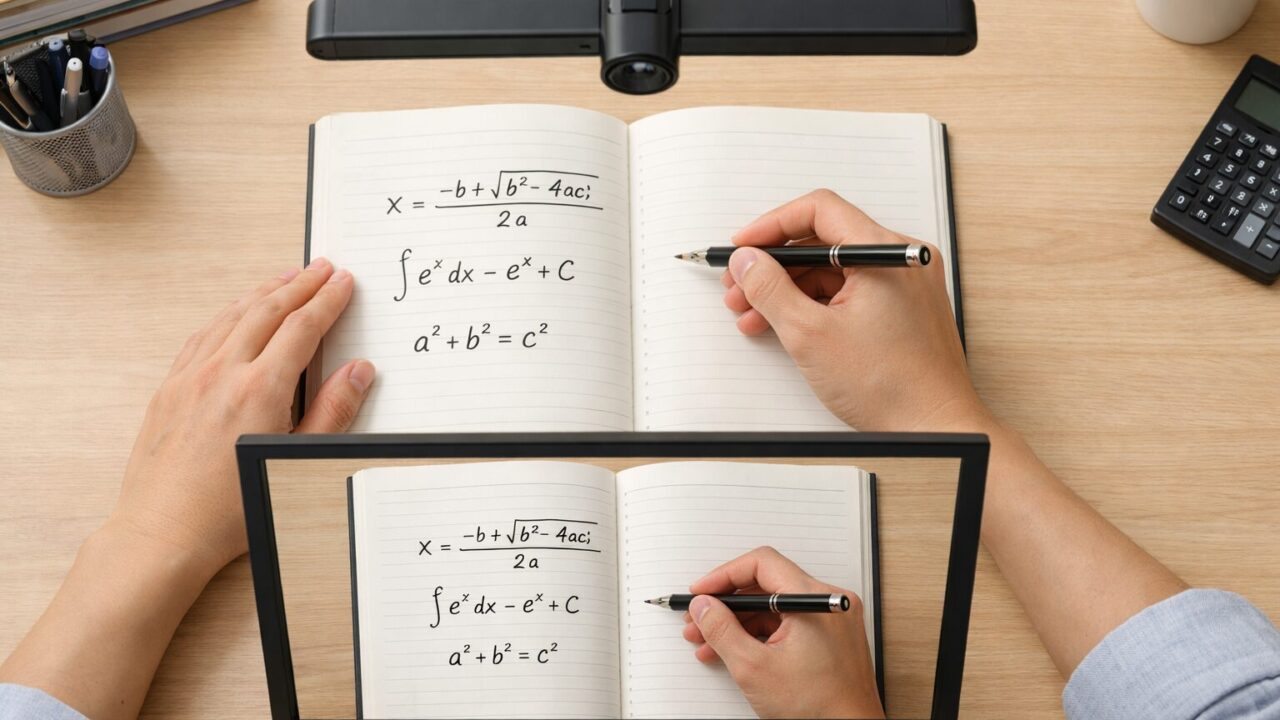 x = (-b + √(b² - 4ac;)) / 2a
∫ eˣ dx - eˣ + C
a² + b² = c²
7 8 9
4 5 6
1 2 3
0
x = (-b + √(b² - 4ac;)) / 2a
∫ eˣ dx - eˣ + C
a² + b² = c²